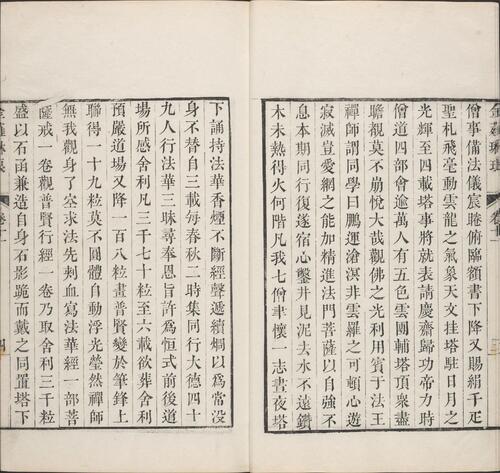 金薤琳琅
僧事備法儀宸睠俯臨額書下降又賜絹千疋
聖札飛毫動雲龍之氣象天文挂塔駐日月之
光輝至四載塔事將就表請慶齋歸功帝力時
僧道四部會逾萬人有五色雲團輔塔頂衆盡
瞻覩莫不崩悅大哉觀佛之光利用賓于法王
禪師謂同學曰鵬運滄溟非雲羅之可頓心遊
寂滅豈愛網之能加精進法門菩薩以自強不
息本期同行復遂宿心鑿井見泥去水不遠鑽
木未熱得火何階凡我七僧聿懷一志晝夜塔
下誦持法華香煙不斷經聲遞續烱以爲常沒
身不替自三載每春秋二時集同行大德四十
九人行法華三昧尋奉恩旨許爲恒式前後道
場所感舍利凡三千七十粒至六載欲葬舍利
預嚴道場又降一百八粒畫普賢變於筆鋒上
聯得一十九粒莫不圓體自動浮光瑩然禪師
無我觀身了空求法先刺血寫法華經一部菩
薩戒一卷觀普賢行經一卷乃取舍利三千粒
盛以石函兼造自身石影跪而戴之同置塔下
金薤琳琅 卷十一 四